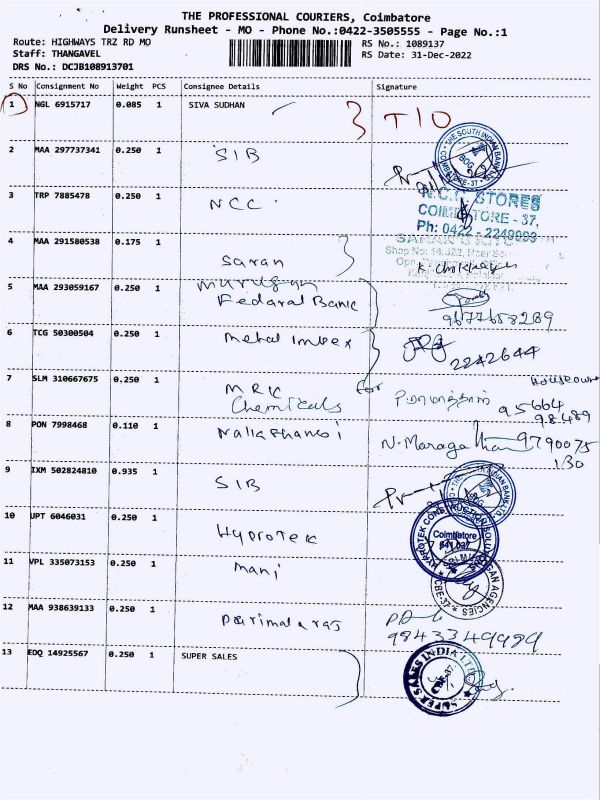 THE PROFESSIONAL COURIERS, Coimbatore
Delivery Runsheet - MO - Phone No.:0422-3505555 - Page No.:1
Route: HIGHWAYS TRZ RD MO
RS No.: 1089137
Staff: THANGAVEL
RS Date: 31-Dec-2022
DRS No.: DCJB108913701
S No Consignment No Weight PCS Consignee Details Signature
1 NGL 6915717 0.085 1 SIVA SUDHAN T10
2 MAA 297737341 0.250 1 SIB
3 TRP 7885478 0.250 1 NCC
STORES
COIMBATORE - 37,
Ph: 0422 - 2249999
4 MAA 291580538 0.175 1 Saran
5 MAA 293059167 0.250 1 Murugan
Fedaral Bank
9677658289
6 TCG 50300504 0.250 1 Metal Imbex 2242644
7 SLM 310667675 0.250 1 MRK for
Chemicals
Houseowner
95664
98489
8 PON 7998468 0.110 1 Nallathambi N. Maragatham 9790075
130
9 IXM 502824810 0.935 1 SIB
10 UPT 6046031 0.250 1 Hyprotek
Coimbatore
641 037
11 VPL 335073153 0.250 1 Mani
CBE-37
12 MAA 938639133 0.250 1 Parimalaraj
9843349989
13 EDQ 14925567 0.250 1 SUPER SALES
SUPER SALES INDIA LTD
CBE-37